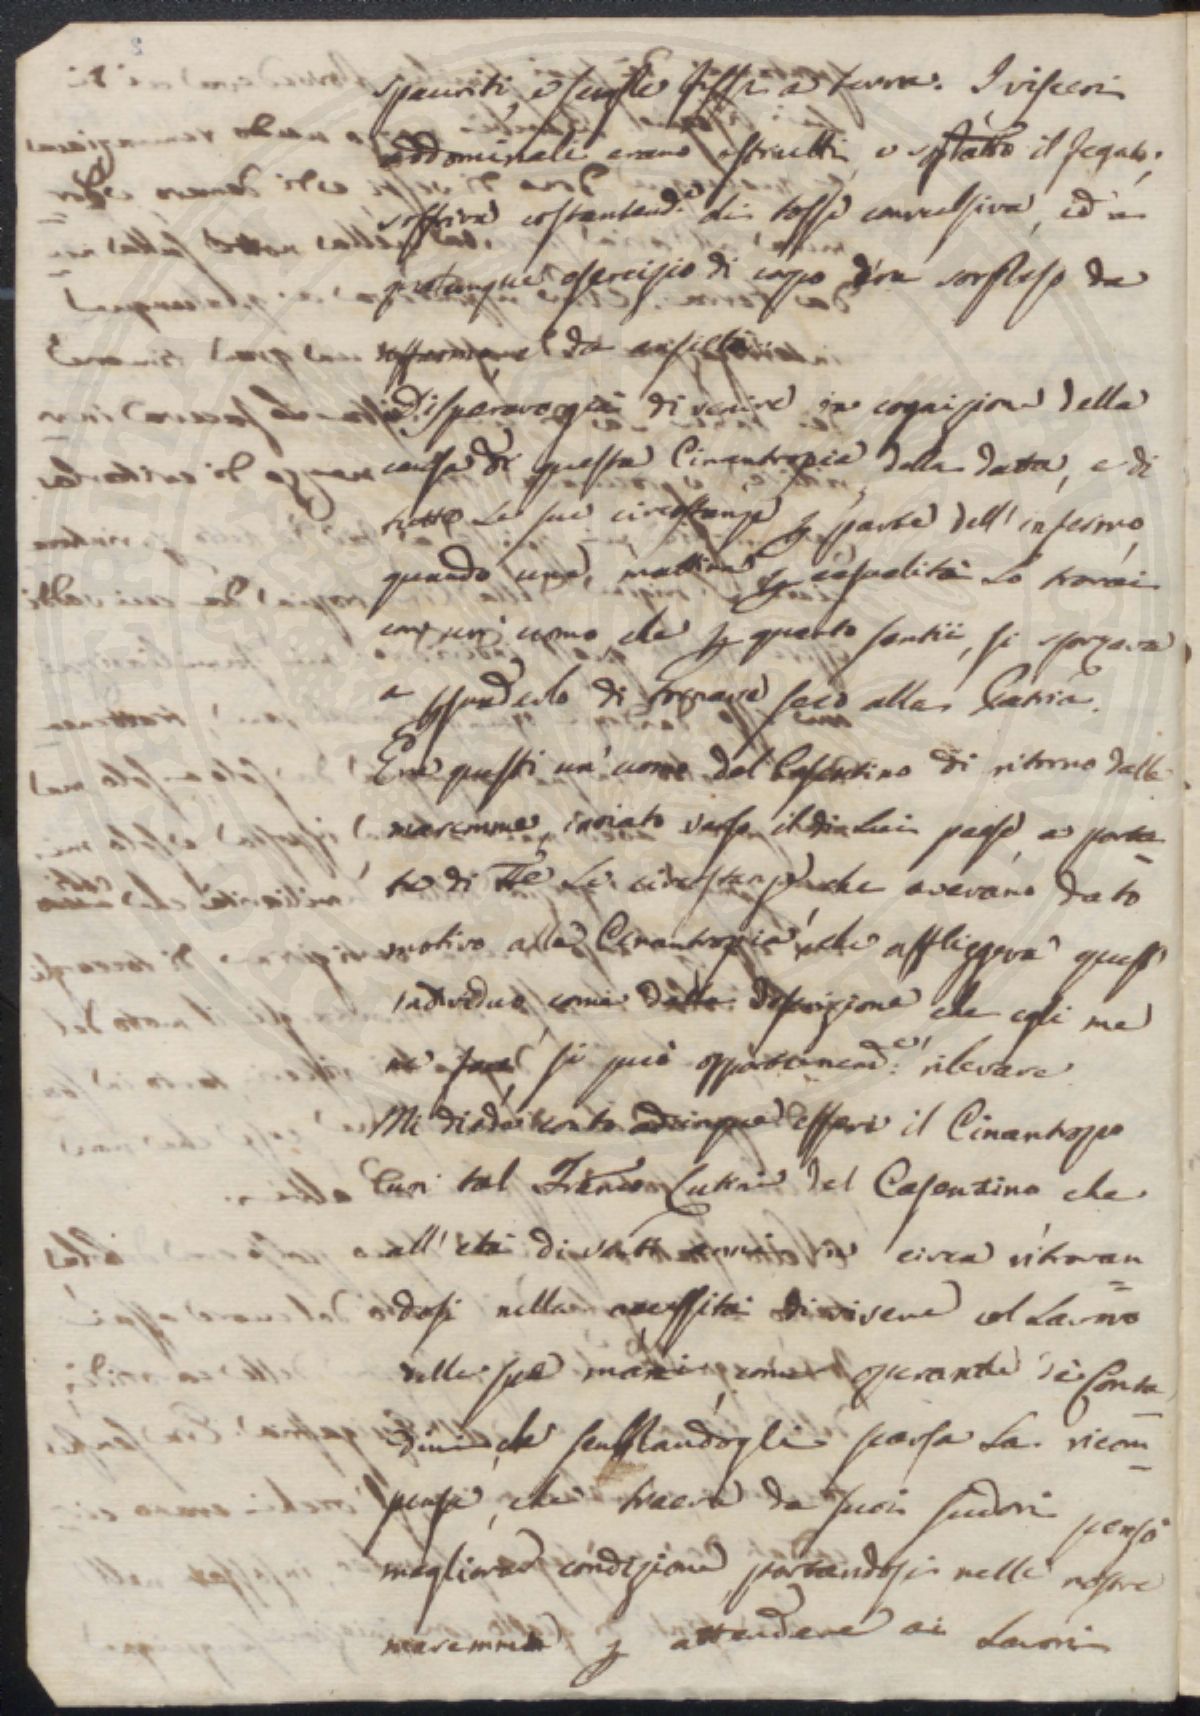 spauriti, e sempre fissi a terra. I visceri
addominali erano ostrutti, e il fegato;
soffriva costantem.e di tosse convulsiva, ed a
qualunque esercizio di corpo era sorpreso da
da
Disperavo già di venire in cognizione della
causa di questa Cinantropia, della data, e di
tutte le sue circostanze p parte dell'infermo,
quando una mattina p casualità lo trovai
con un uomo, che p quanto sentii, si sforzava
a di tornare seco alla Patria.
Era questi un'uomo del Casentino di ritorno dalle
maremme, inviato verso il di Lui paese a porta=
ta di Le circostanze che avevano dato
motivo alla Cinantropia, che affliggeva quest'
individuo, come dalla descrizione che egli me
ne fece si può opportunam.e rilevare
Mi diede conto adunque essere il Cinantropo
un tal Franco del Casentino che
all'età di venti anni in circa ritrovan=
dosi nella necessità di vivere col Lavoro
delle sue mani come operante de Conta=
dini, che sembrandogli scarsa la ricom=
pensa, che traeva da suoi sudori pensò
megliorar condizione portandosi nelle nostre
maremme p attendere ai Lavori